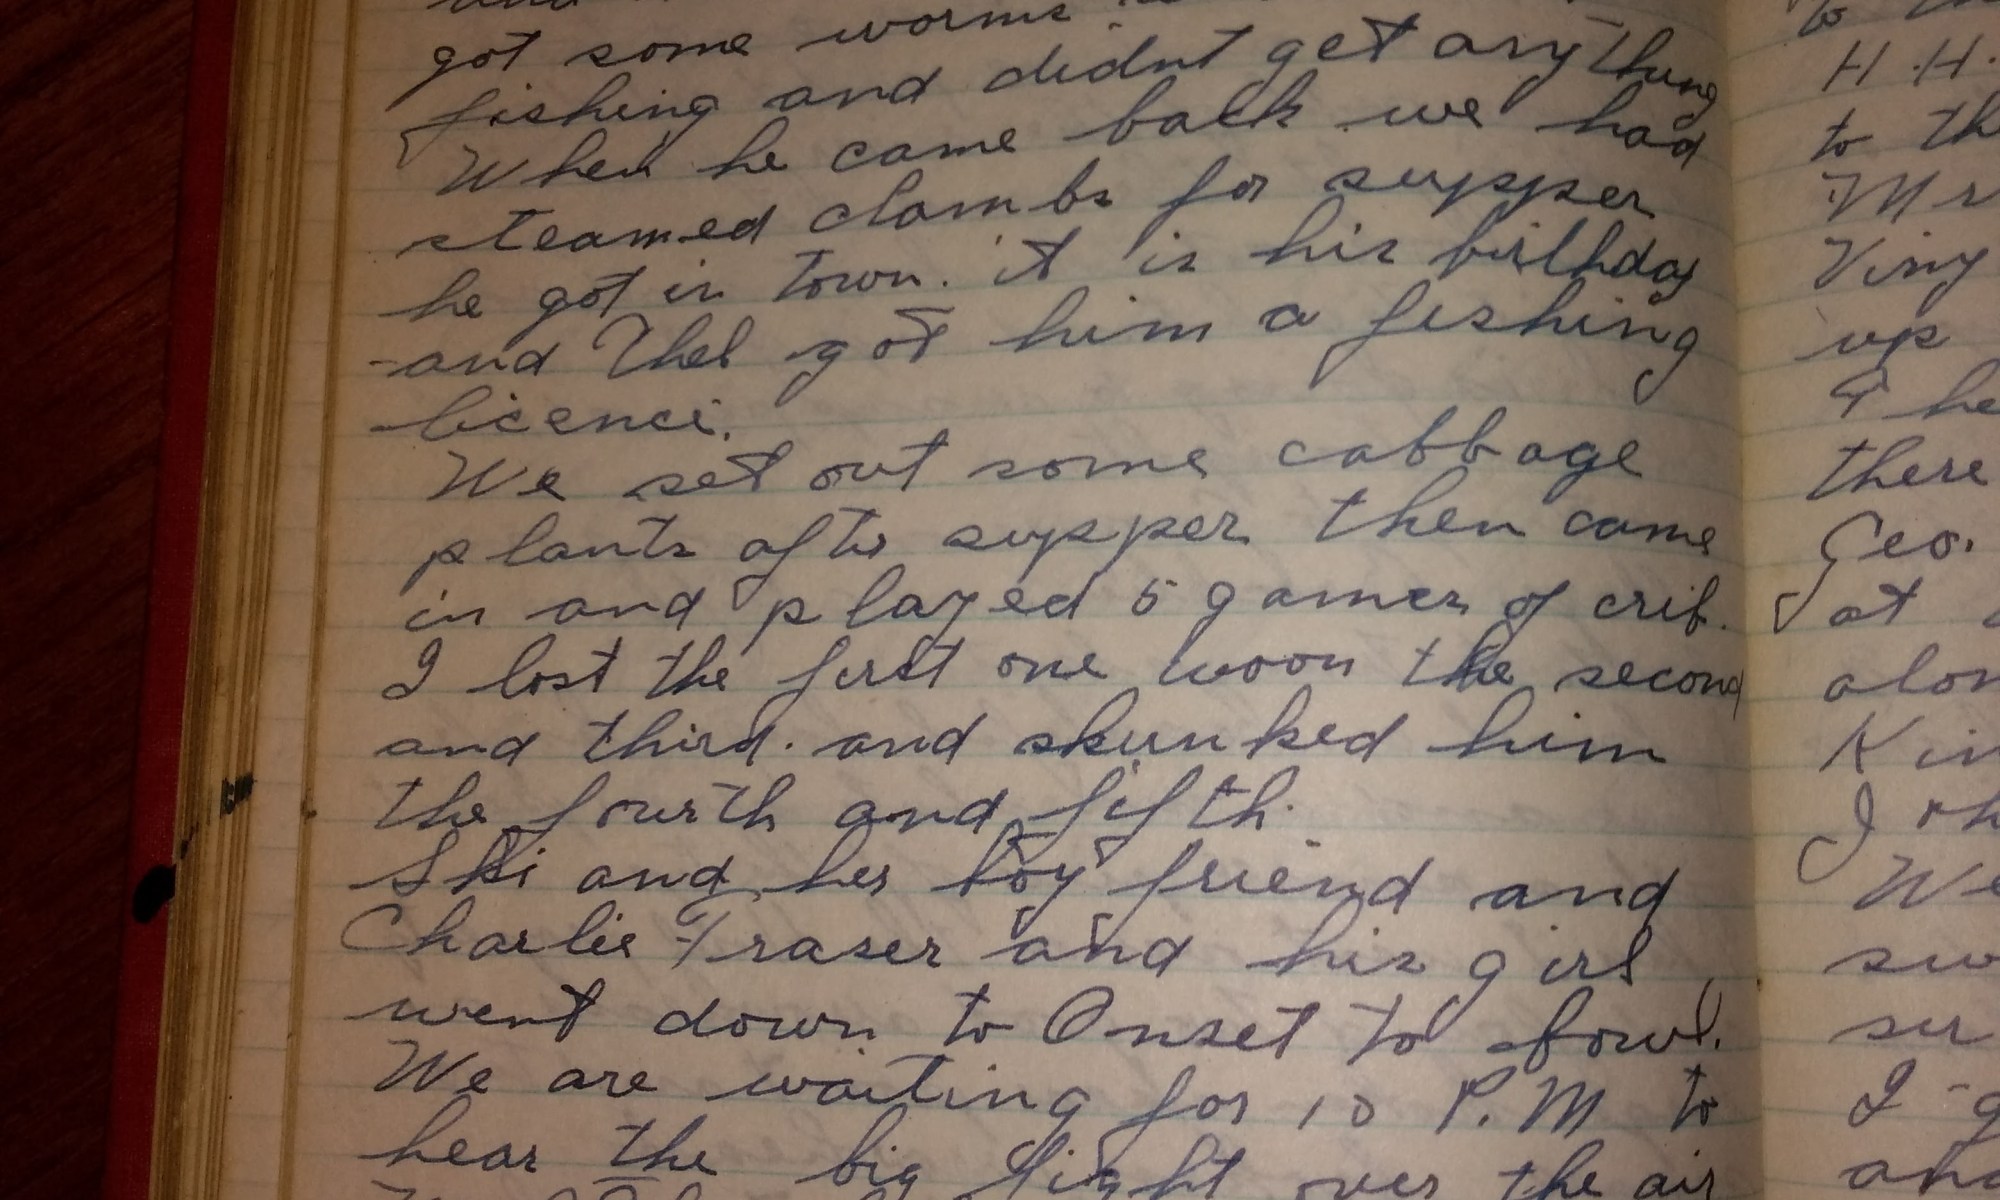 got some worms
fishing and didnt get anything
When he came back we had
steamed clambs for supper
he got in town. it is his birthday
and Thel got him a fishing
licence.
We set out some cabbage
plants after supper then came
in and played 5 games of crib.
I lost the first one woon the second
and third. and skunked him
the fourth and fifth.
Ski and her boy friend and
Charlie Fraser and his girl
went down to Onset to bowl.
We are waiting for 10 P.M to
hear the big fight over the air
H.H.
to
Mr
Viny
up
there
Geo.
at
We
I